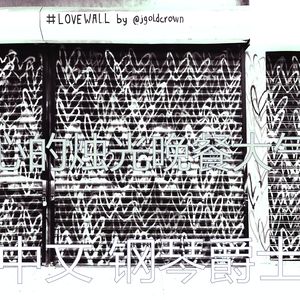 #LOVEWALL by @jgoldcrown
的烛光晚餐大
中文 钢琴爵士